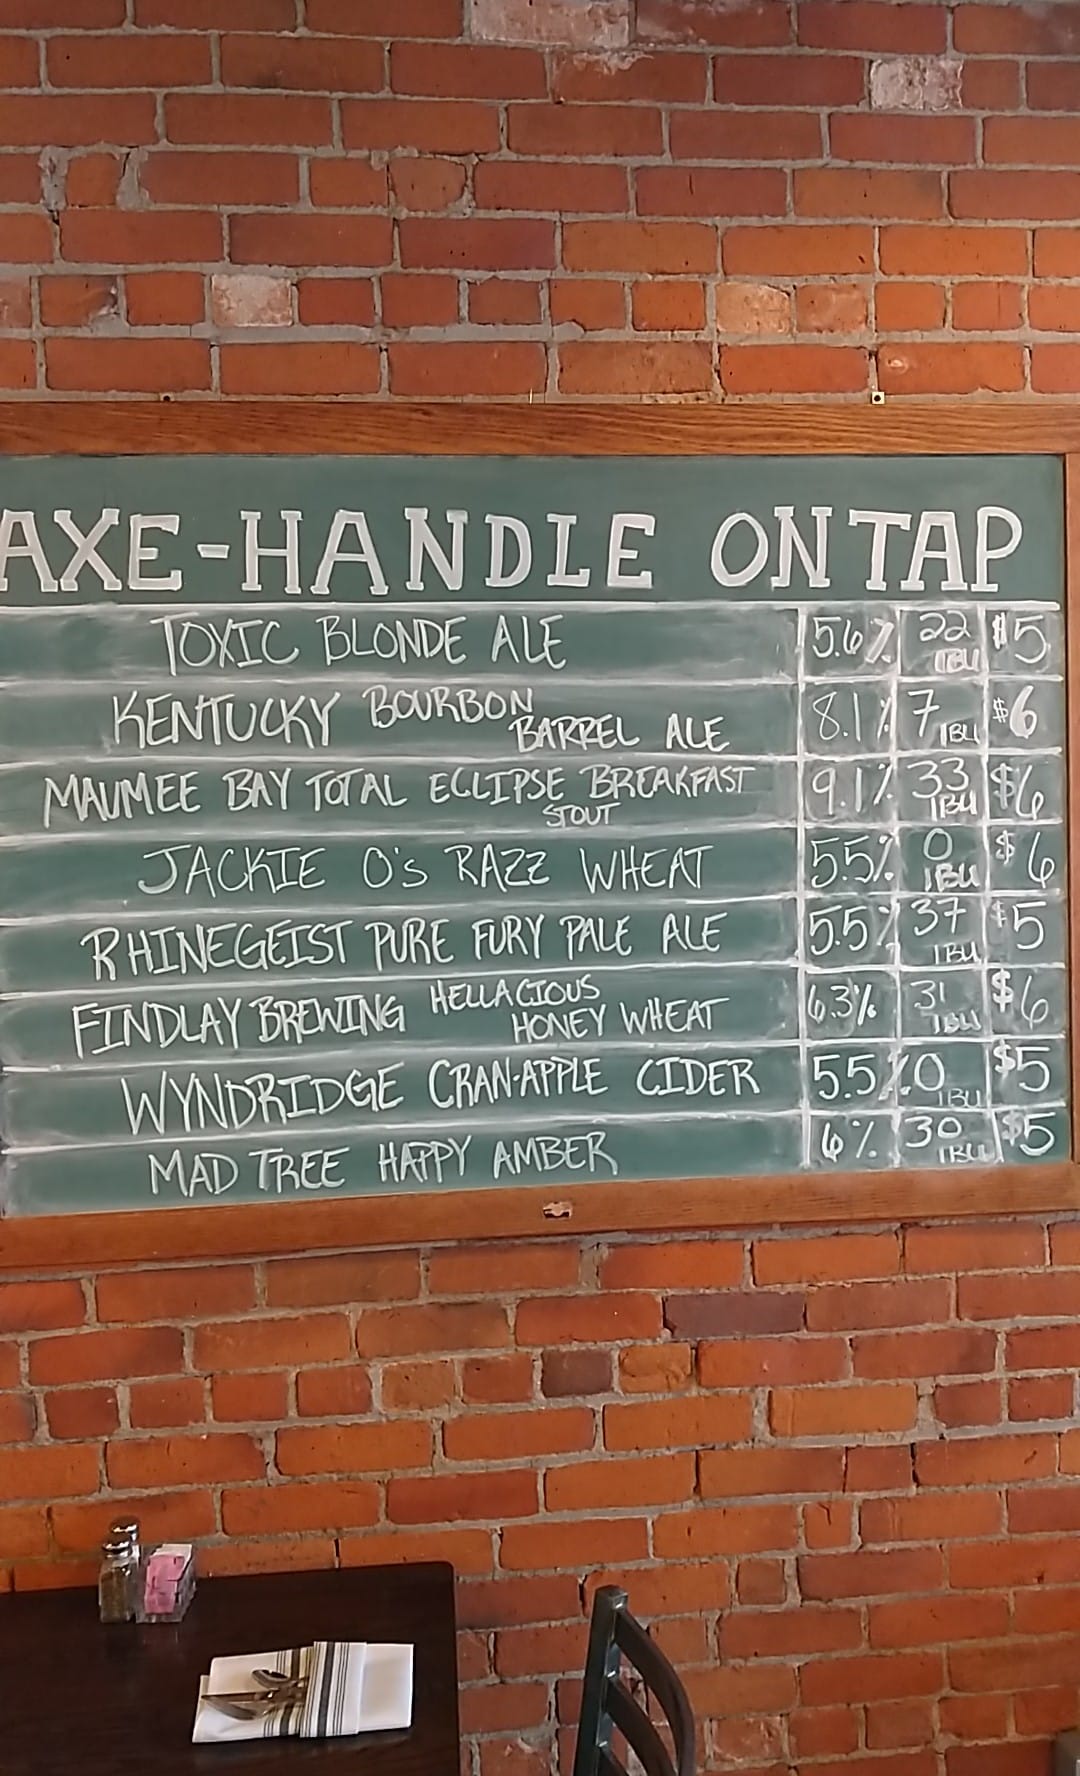 AXE-HANDLE ON TAP
TOXIC BLONDE ALE 5.6% 22 IBU $5
KENTUCKY BOURBON BARREL ALE 8.1% 7 IBU $6
MAUMEE BAY TOTAL ECLIPSE BREAKFAST STOUT 9.1% 33 IBU $6
JACKIE O's RAZZ WHEAT 5.5% 0 IBU $6
RHINEGEIST PURE FURY PALE ALE 5.5% 37 IBU $5
FINDLAY BREWING HELLACIOUS HONEY WHEAT 6.3% 31 IBU $6
WYNDRIDGE CRAN-APPLE CIDER 5.5% 0 IBU $5
MAD TREE HAPPY AMBER 6% 30 IBU $5